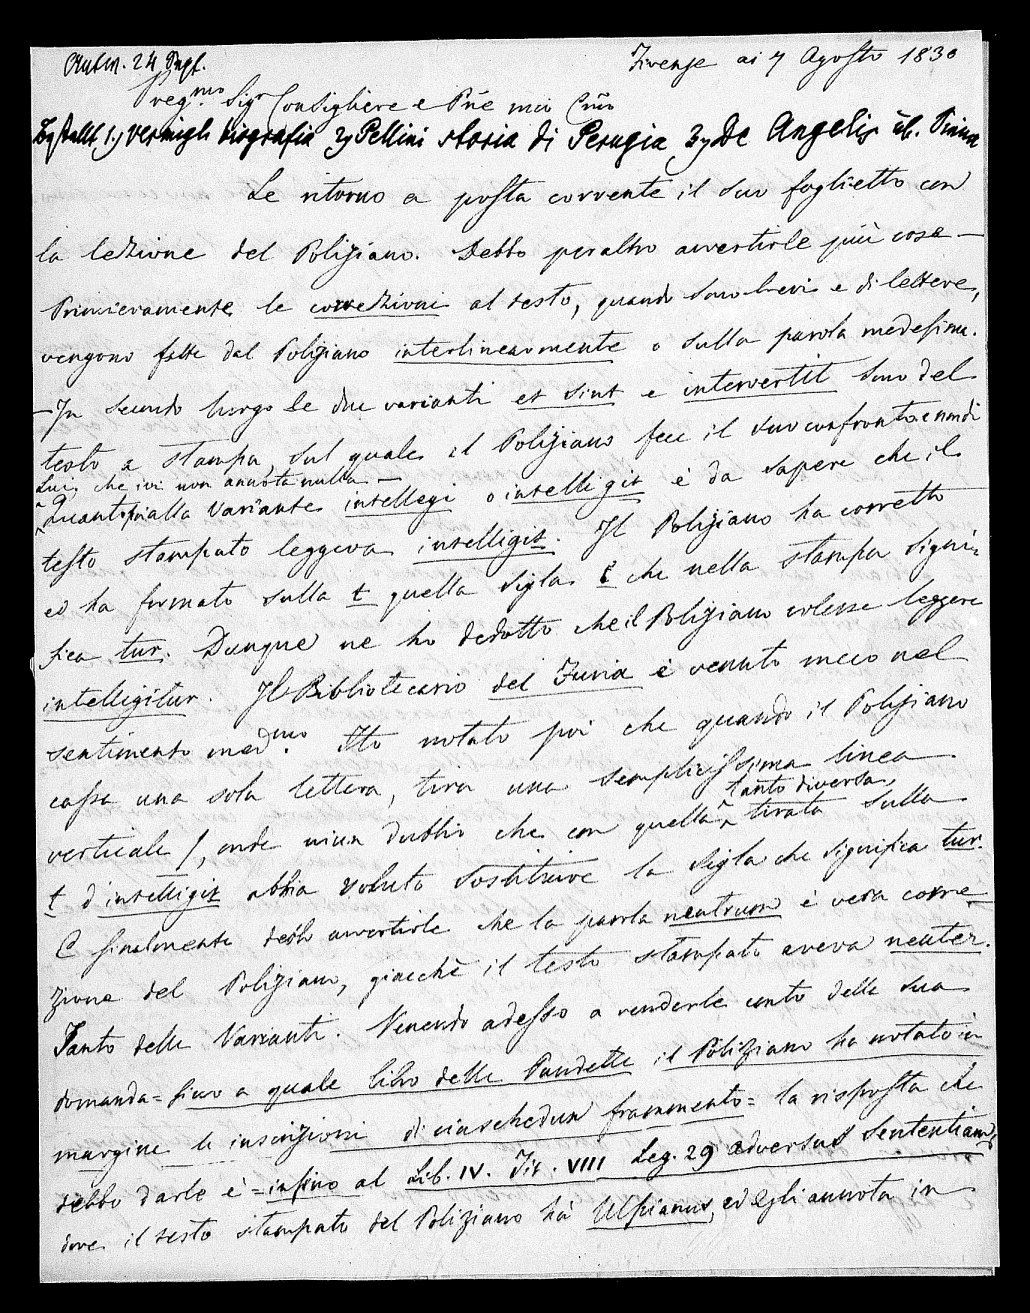 Antw. 24 Sept.
Firenze ai 7 Agosto 1830
Preg.mo Sigr Consigliere e Pñe mio Cm̃o
1) Vermigli biografia 2) Pellini storia di Perugia 3) De Angelis
Le ritorno a posta corrente il suo foglietto con
la lezione del Poliziano. Debbo peraltro avvertirle più cose —
Primieramente le correzioni al testo, quando sono brevi e di lettere,
vengono fatte dal Poliziano interlinearmente o sulla parola medesima.
— In secondo luogo le due varianti et sint e intervertit sono del
testo a stampa, sul quale il Poliziano fece il suo confronto e non di
Lui, che ivi non annota nulla —
Quanto poi alla Variante intellegi o intelligit è da sapere che il
testo stampato leggeva intelligit. Il Poliziano ha corretto
ed ha formato sulla t quella sigla che nella stampa signi-
fica tur. Dunque ne ho dedotto che il Poliziano volesse leggere
intelligitur. Il Bibliotecario del Furia è venuto meco nel
sentimento med.mo. Ho notato poi che quando il Poliziano
cassa una sola lettera, tira una semplicissima linea
verticale /, onde niun dubbio che con quella tanto diversa tirata sulla
t d'intelligit abbia voluto sostituire la sigla che significa tur.
E finalmente debbo avvertirle che la parola neutrum è vera corre-
zione del Poliziano, giacchè il testo stampato aveva neuter.
Tanto delle Varianti. Venendo adesso a renderle conto della sua
domanda = fino a quale libro delle Pandette il Poliziano ha notato in
margine le inscrizioni di ciaschedun frammento = la risposta che
debbo darle è = infino al Lib. IV. Tit. VIII Leg. 29 adversus sententiam,
dove il testo stampato del Poliziano ha Ulpianus, ed egli annota in